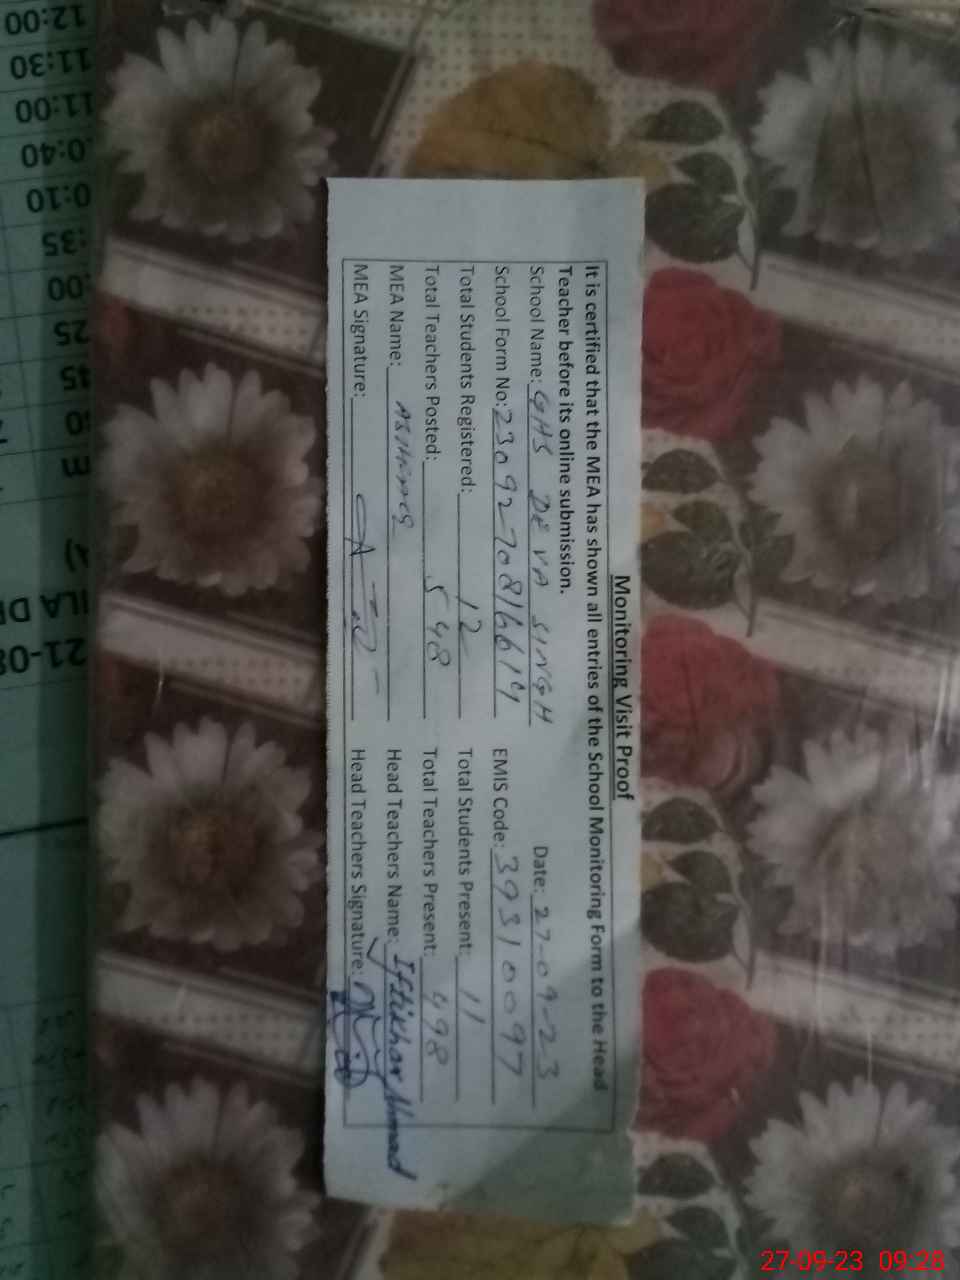 Monitoring Visit Proof
It is certified that the MEA has shown all entries of the School Monitoring Form to the Head
Teacher before its online submission.
School Name: GHS DEVA SINGH Date: 27-09-23
School Form No: EMIS Code: 39310097
Total Students Registered: 12 Total Students Present: 11
Total Teachers Posted: 548 Total Teachers Present: 498
MEA Name: Head Teachers Name: Iftikhar Ahmad
MEA Signature: Head Teachers Signature:
12:00
11:30
11:00
0:40
0:10
:35
:00
25
45
ILA DE
21-08
27-09-23 09:28